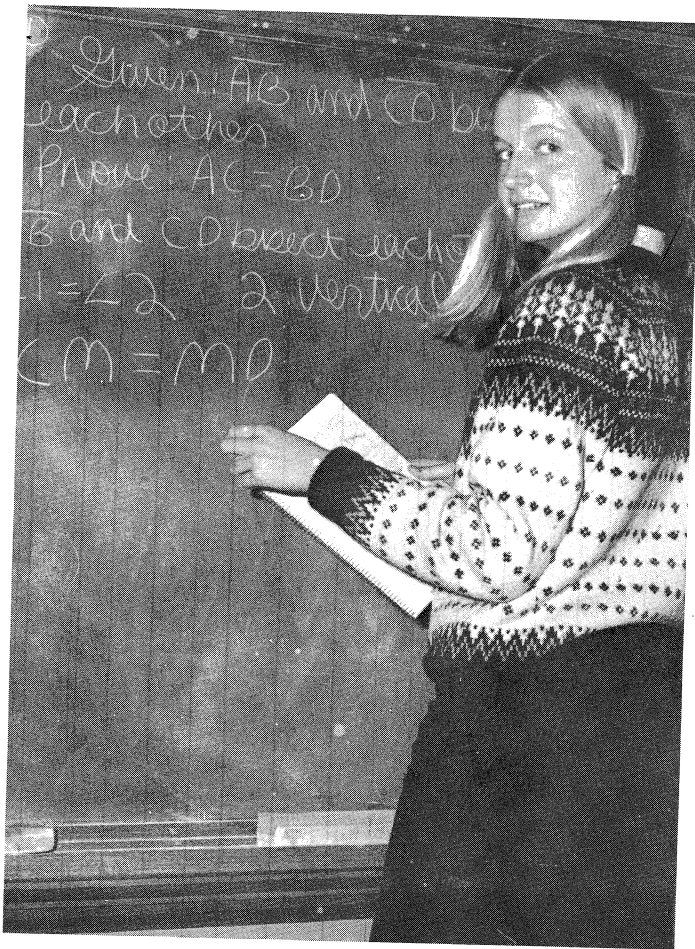 Given: AB and CD bi
each other
Prove: AC = BD
B and CD bisect each o
1 = ∠2 2 Vertical
CM = MD